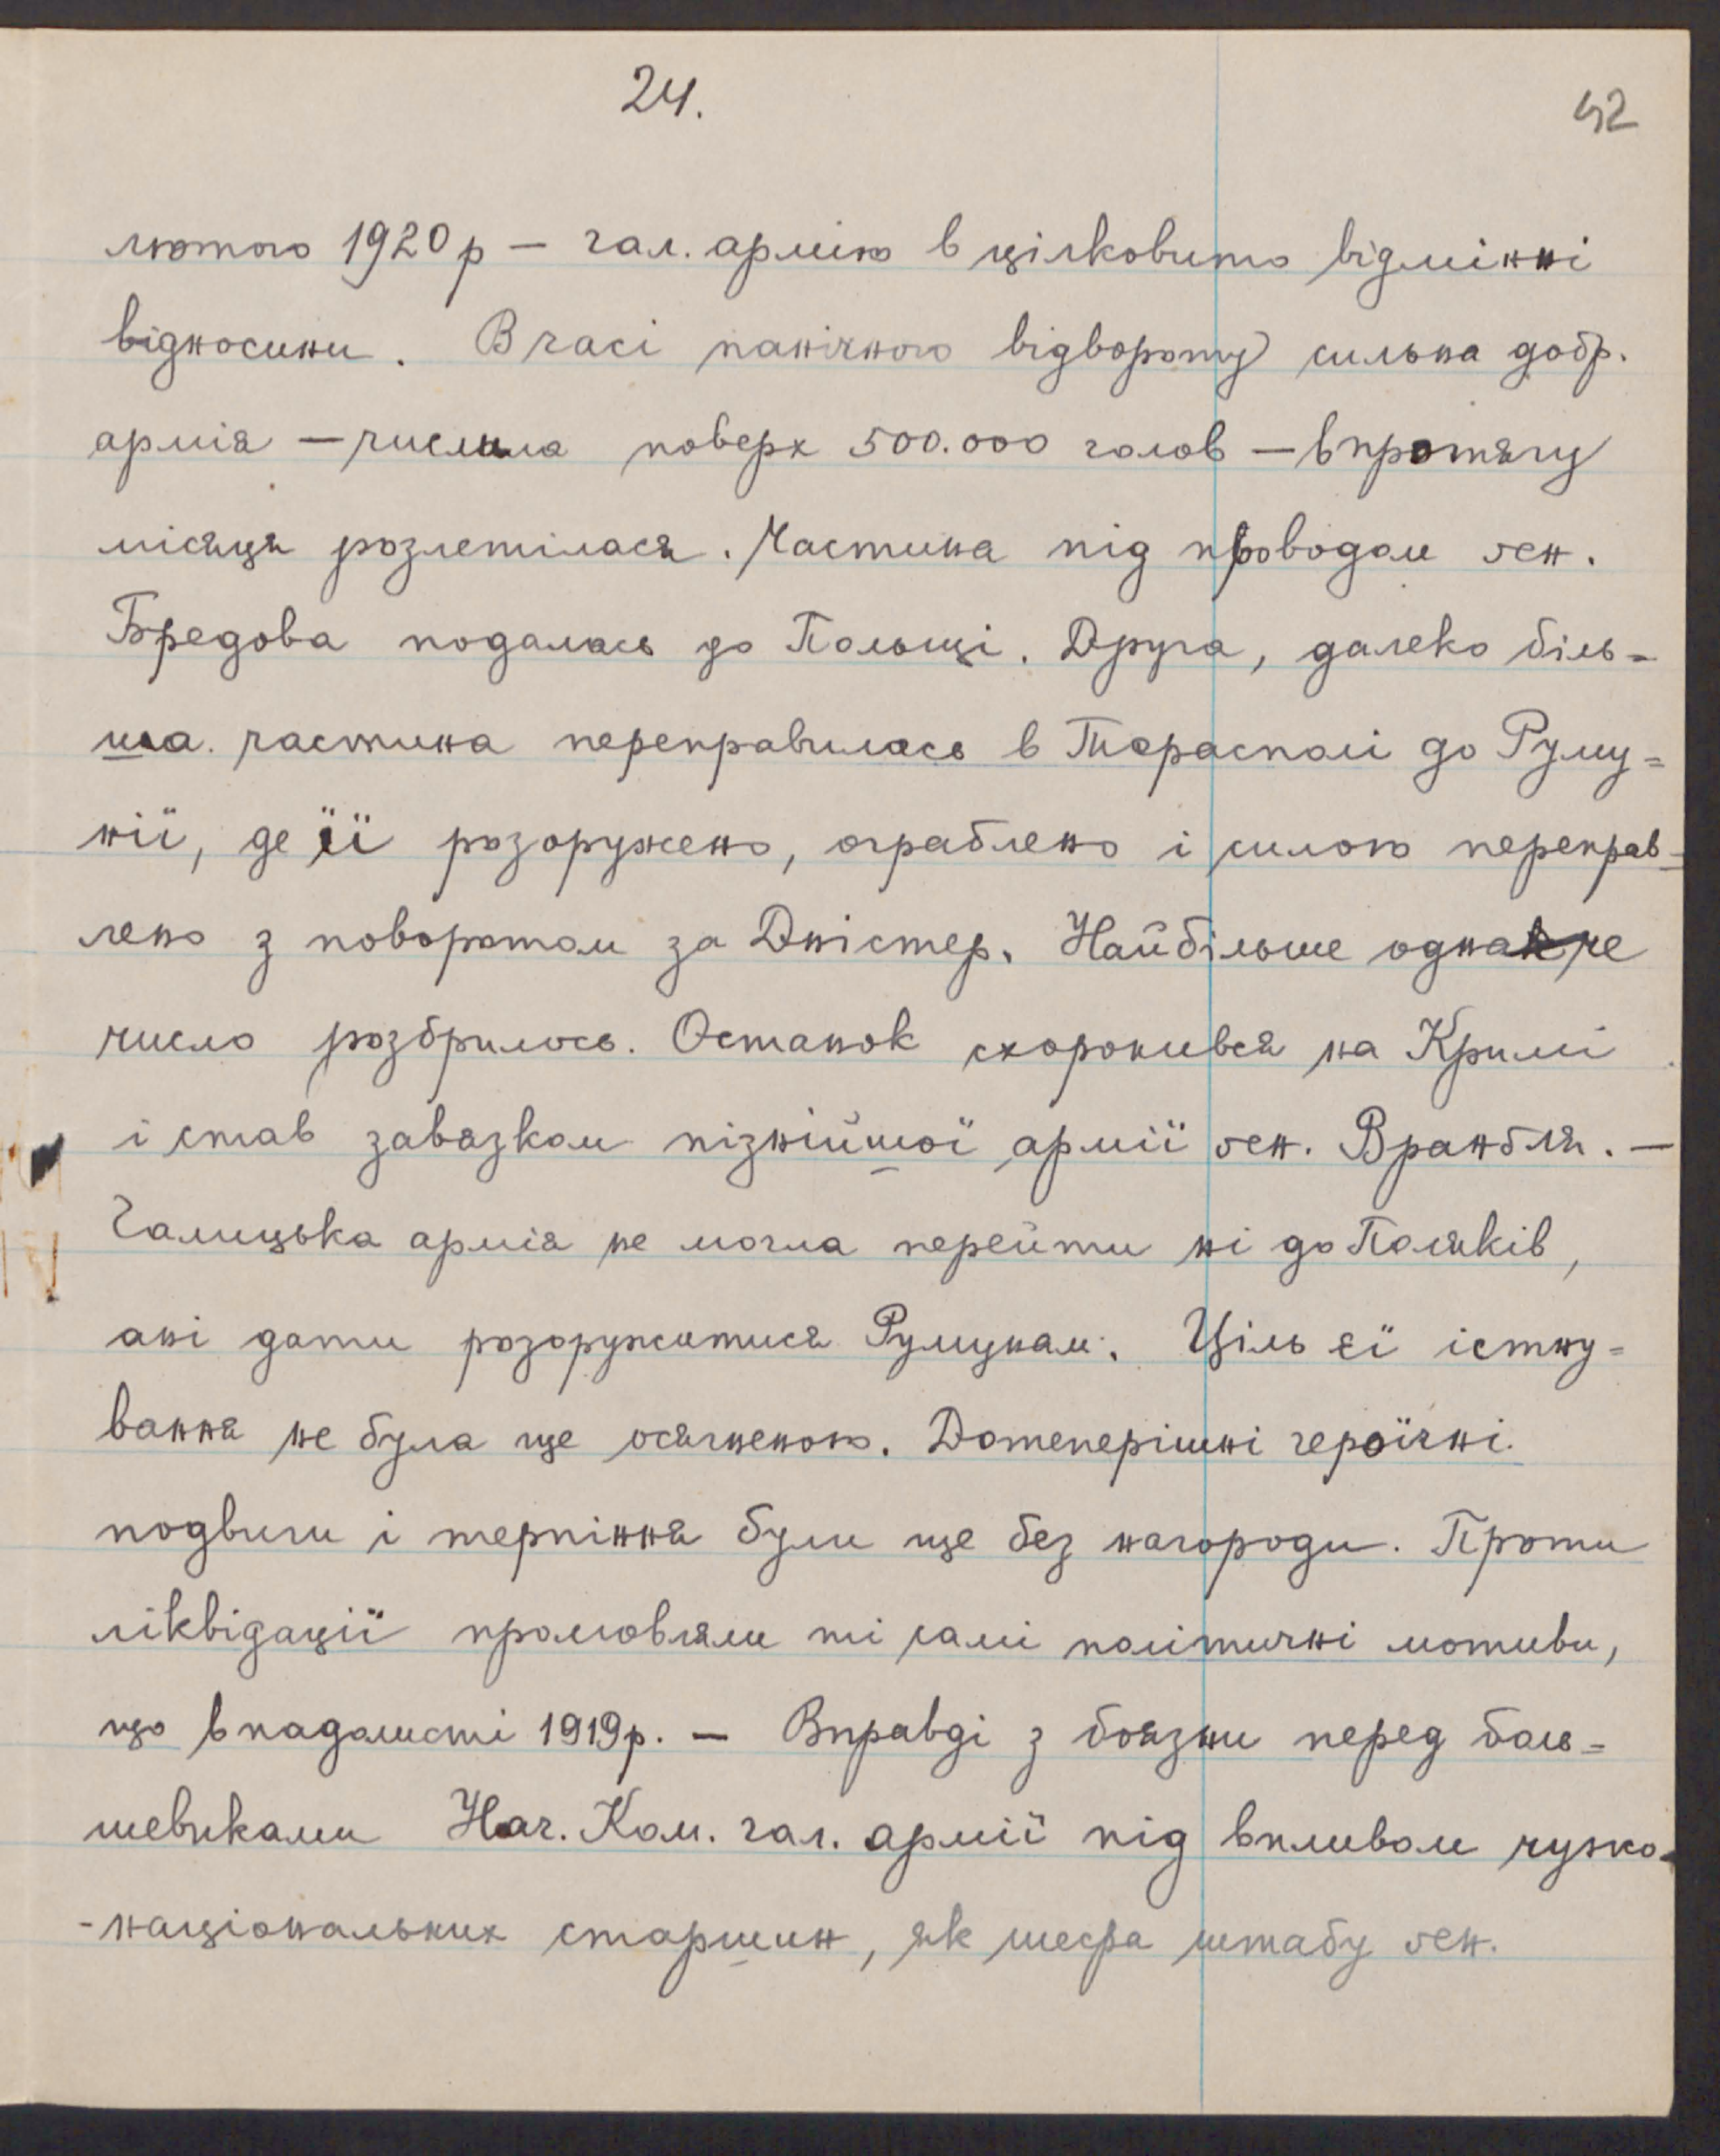 24.
42
лютого 1920 р — гал. армію в цілковито відмінні
відносини. В часі панічного відвороту сильна добр.
армія — числила поверх 500.000 голов — в протягу
місяця розлетілася. Частина під проводом ґен.
Бредова подалась до Польщі. Друга, далеко біль=
ша. частина переправилась в Тирасполі до Руму=
нії, де її розоружено, ограблено і силою переправ=
лено з поворотом за Дністер. Найбільше одначе
число розбрилось. Останок схоронився на Кримі
і став завязком пізнійшої армії ґен. Вранґля. —
Галицька армія не могла перейти ні до Поляків,
ані дати розоружитися Румунам. Ціль єї істну=
вання не була ще осягненою. Дотеперішні героїчні
подвиги і терпіння були ще без нагороди. Проти
ліквідації промовляли ті самі політичні мотиви,
що в падолисті 1919 р. — Вправді з боязни перед боль=
шевиками Нач. Ком. гал. армії під впливом чужо-
-національних старшин, як шефа штабу ґен.